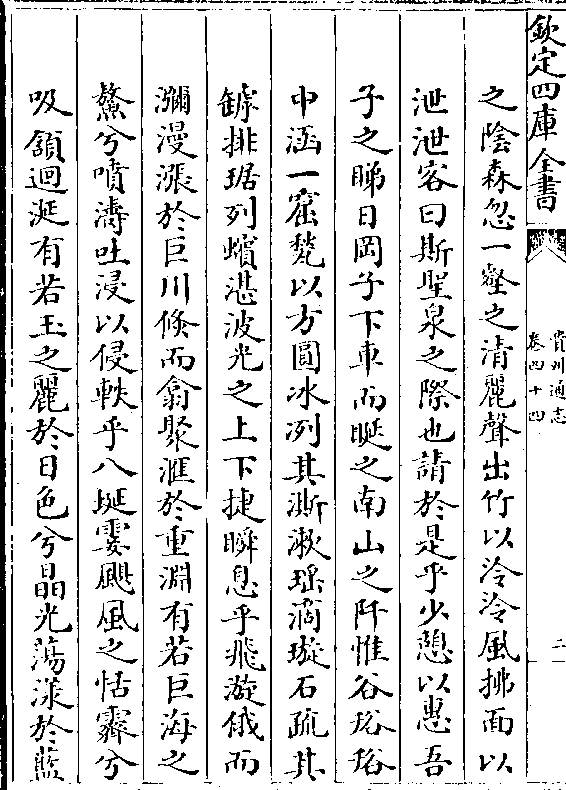 欽定四庫全書
貴州通志
卷四十四
二
之陰森忽一壑之清麗聲出竹以泠泠風拂面以
泄泄客曰斯聖泉之際也請於是乎少憩以惠吾
子之睇日岡子下車而睨之南山之阡惟谷谿谿
中涵一窟甃以方圓冰冽其澌漱瑤滴璇石疏其
罅排琚列蠙湛波光之上下捷瞬息乎飛漩俄而
瀰漫漲於巨川倏而翕聚滙於重淵有若巨海之
鰲兮噴濤吐浸以侵軼乎八埏霎颶風之恬霽兮
吸頷迴涎有若玉之麗於日色兮晶光蕩漾於藍